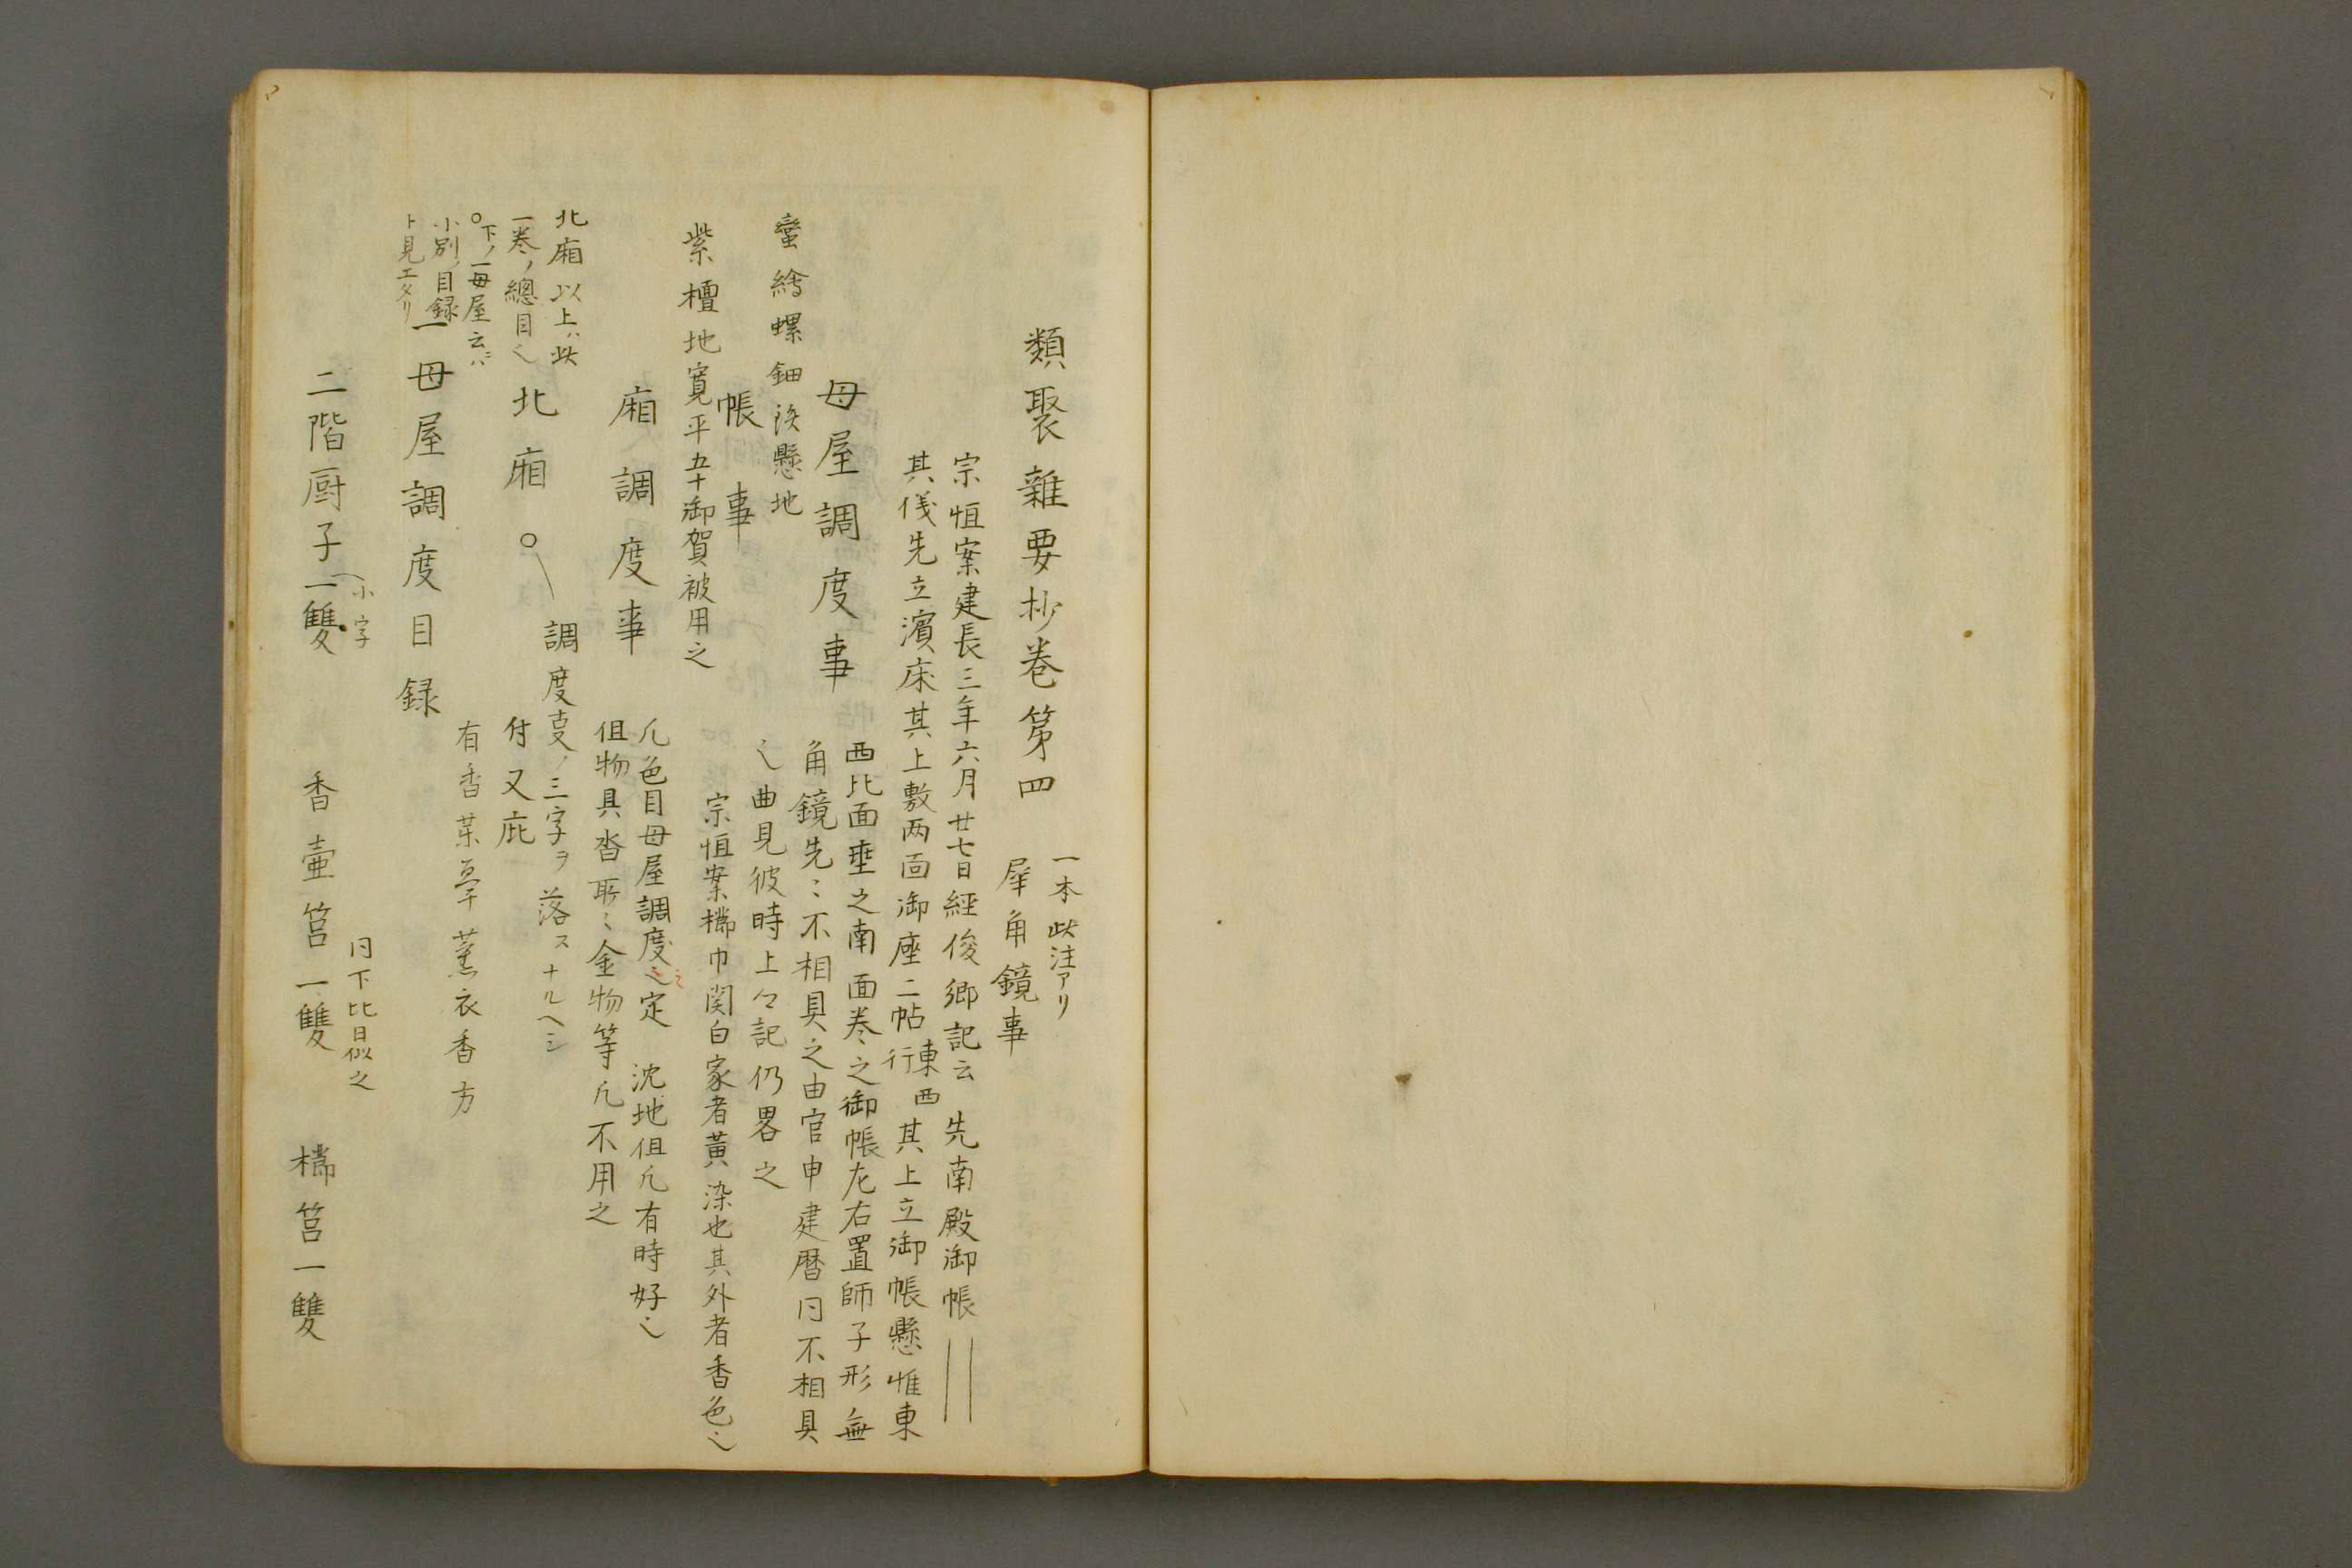 類聚雑要抄巻第四
一本此注アリ
犀角鏡事
宗恒案建長三年六月廿七日經俊郷記云 先南殿御帳
其儀先立濱床其上敷两面御座二帖東西行其上立御帳懸帷東
西比面垂之南面巻之御帳左右置師子形無
母屋調度事
角鏡先〻不相具之由官申建暦同不相具
蛮繪螺鈿 懸地
之曲見彼時上々記仍畧之
帳事
宗恒案櫛巾関白家者黄染也其外者香色之
紫檀地寛平五十御賀被用之
廂調度事
凡色目母屋調度之定 沈地但凡有時好之
但物具沓 〻金物等凡不用之
北廂以上ハ此
一巻ノ總目之
○下ノ一母屋云〻ハ
小別ノ目録
ト見エタリ
北廂○
調度事ノ三字ヲ落スナルヘシ
付又庇
有香 薫衣香方
一母屋調度目録
二階厨子一雙
小字
香壷筥一雙
同下比日似之
櫛筥一雙